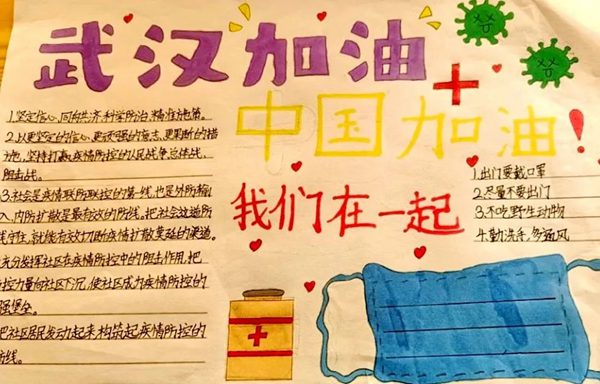 武汉加油
中国加油！
我们在一起
1.坚定信心、同舟共济、科学防治、精准施策。
2.以更坚定的信心、更顽强的意志、更果断的措
施,坚持打赢疫情防控的人民战争总体战、
阻击战。
3.社会是疫情联防联控的第一线,也是外防输
入、内防扩散最有效的防线。把社会这道防
线守住,就能有效切断疫情扩散蔓延的渠道。
充分发挥社区在疫情防控中的阻击作用,把
控力量向社区下沉,使社区成为疫情防控的
强堡垒。
把社区居民发动起来,构筑起疫情防控的
防线。
1.出门要戴口罩
2.尽量不要出门
3.不吃野生动物
4.勤洗手,多通风